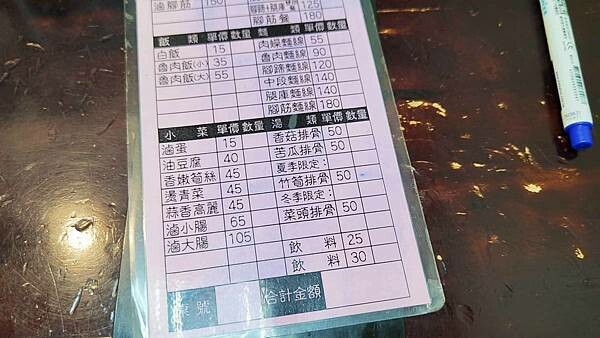 滷腳筋 150 腳蹄+腿庫飯 125
腳筋餐 180
飯 類 單價 數量 麵 類 單價 數量
白飯 15 肉燥麵線 55
魯肉飯(小) 35 魯肉麵線 90
魯肉飯(大) 55 腳蹄麵線 120
中段麵線 140
腿庫麵線 140
腳筋麵線 180
小 菜 單價 數量 湯 類 單價 數量
滷蛋 15 香菇排骨 50
油豆腐 40 苦瓜排骨 50
香嫩筍絲 45 夏季限定:
燙青菜 45 竹筍排骨 50
蒜香高麗 45 冬季限定:
滷小腸 65 菜頭排骨 50
滷大腸 105
飲 料 25
飲 料 30
桌號 合計金額